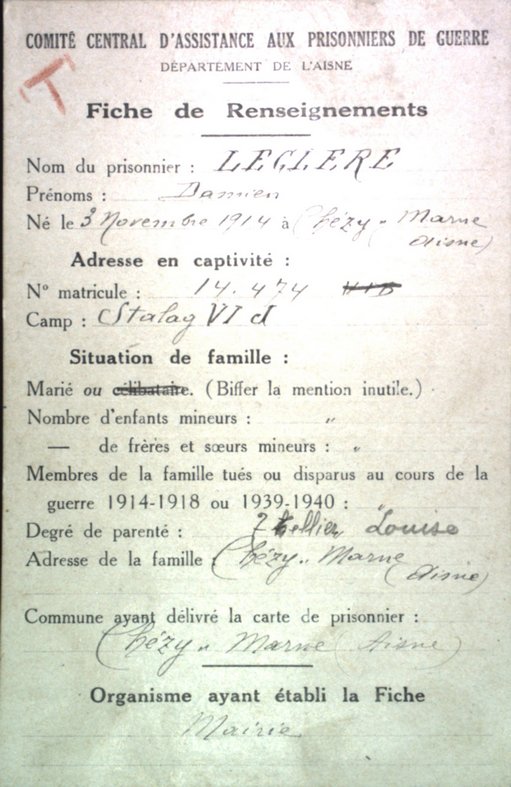 COMITÉ CENTRAL D'ASSISTANCE AUX PRISONNIERS DE GUERRE
DÉPARTEMENT DE L'AISNE
T
Fiche de Renseignements
Nom du prisonnier : LECLERE
Prénoms : Damien
Né le 3 Novembre 1914 à Chézy s/ Marne
(Aisne)
Adresse en captivité :
N° matricule : 14.474
Camp : Stalag VI J
Situation de famille :
Marié ou célibataire. (Biffer la mention inutile.)
Nombre d'enfants mineurs : "
— de frères et sœurs mineurs : "
Membres de la famille tués ou disparus au cours de la
guerre 1914-1918 ou 1939-1940 : "
Degré de parenté : Louise
Adresse de la famille : Chézy s/ Marne
(Aisne)
Commune ayant délivré la carte de prisonnier :
Chézy s/ Marne (Aisne)
Organisme ayant établi la Fiche
Mairie